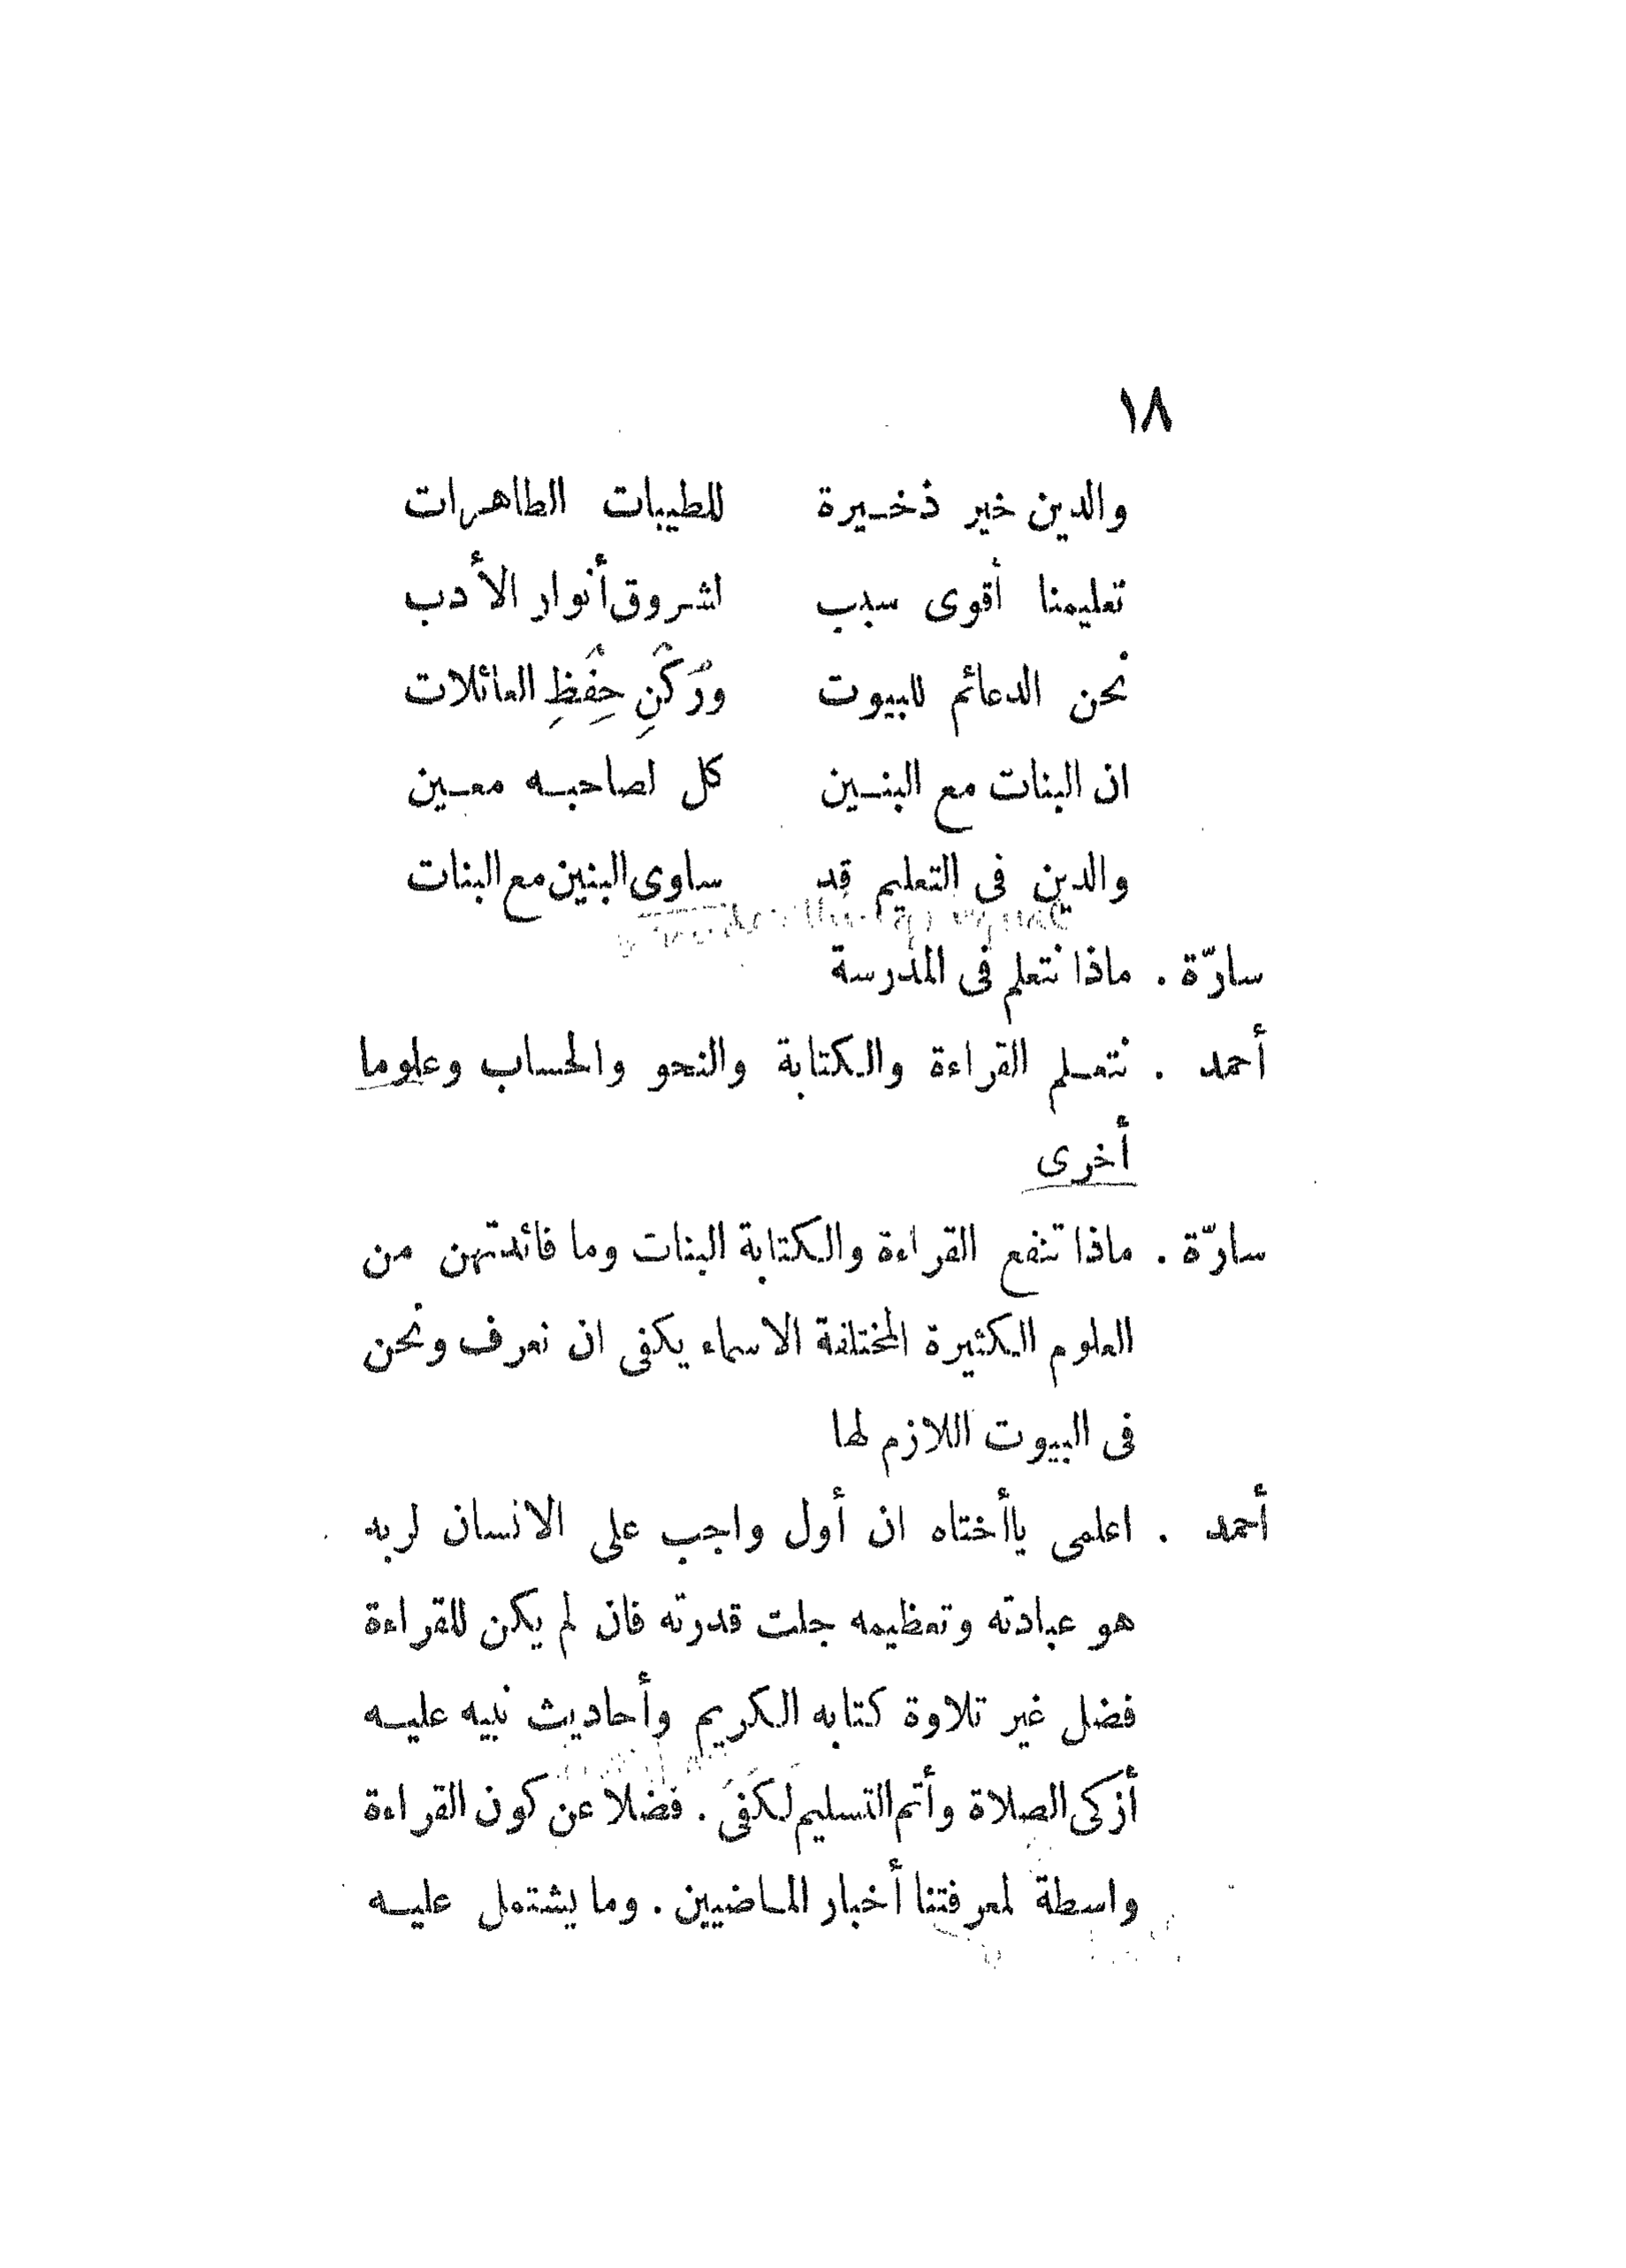 ١٨
والدين خير ذخيرة للطيبات الطاهرات
تعليمنا أقوى سبب لشروق أنوار الأدب
نحن الدعائم للبيوت ورُكْنِ حِفْظِ العائلات
ان البنات مع البنين كل لصاحبه معين
والدين فى التعليم قد ساوى البنين مع البنات
سارّة . ماذا نتعلم فى المدرسة
أحمد . نتعلم القراءة والكتابة والنحو والحساب وعلوما
أخرى
سارّة . ماذا تنفع القراءة والكتابة البنات وما فائدتهن من
العلوم الكثيرة المختلفة الاسماء يكفى ان نعرف ونحن
فى البيوت اللازم لها
أحمد . اعلمى ياأختاه ان أول واجب على الانسان لربه
هو عبادته وتعظيمه جلت قدرته فان لم يكن للقراءة
فضل غير تلاوة كتابه الكريم وأحاديث نبيه عليه
أزكى الصلاة وأتم التسليم لكَفَىَ . فضلا عن كون القراءة
واسطة لمعرفتنا أخبار الماضيين . وما يشتمل عليه